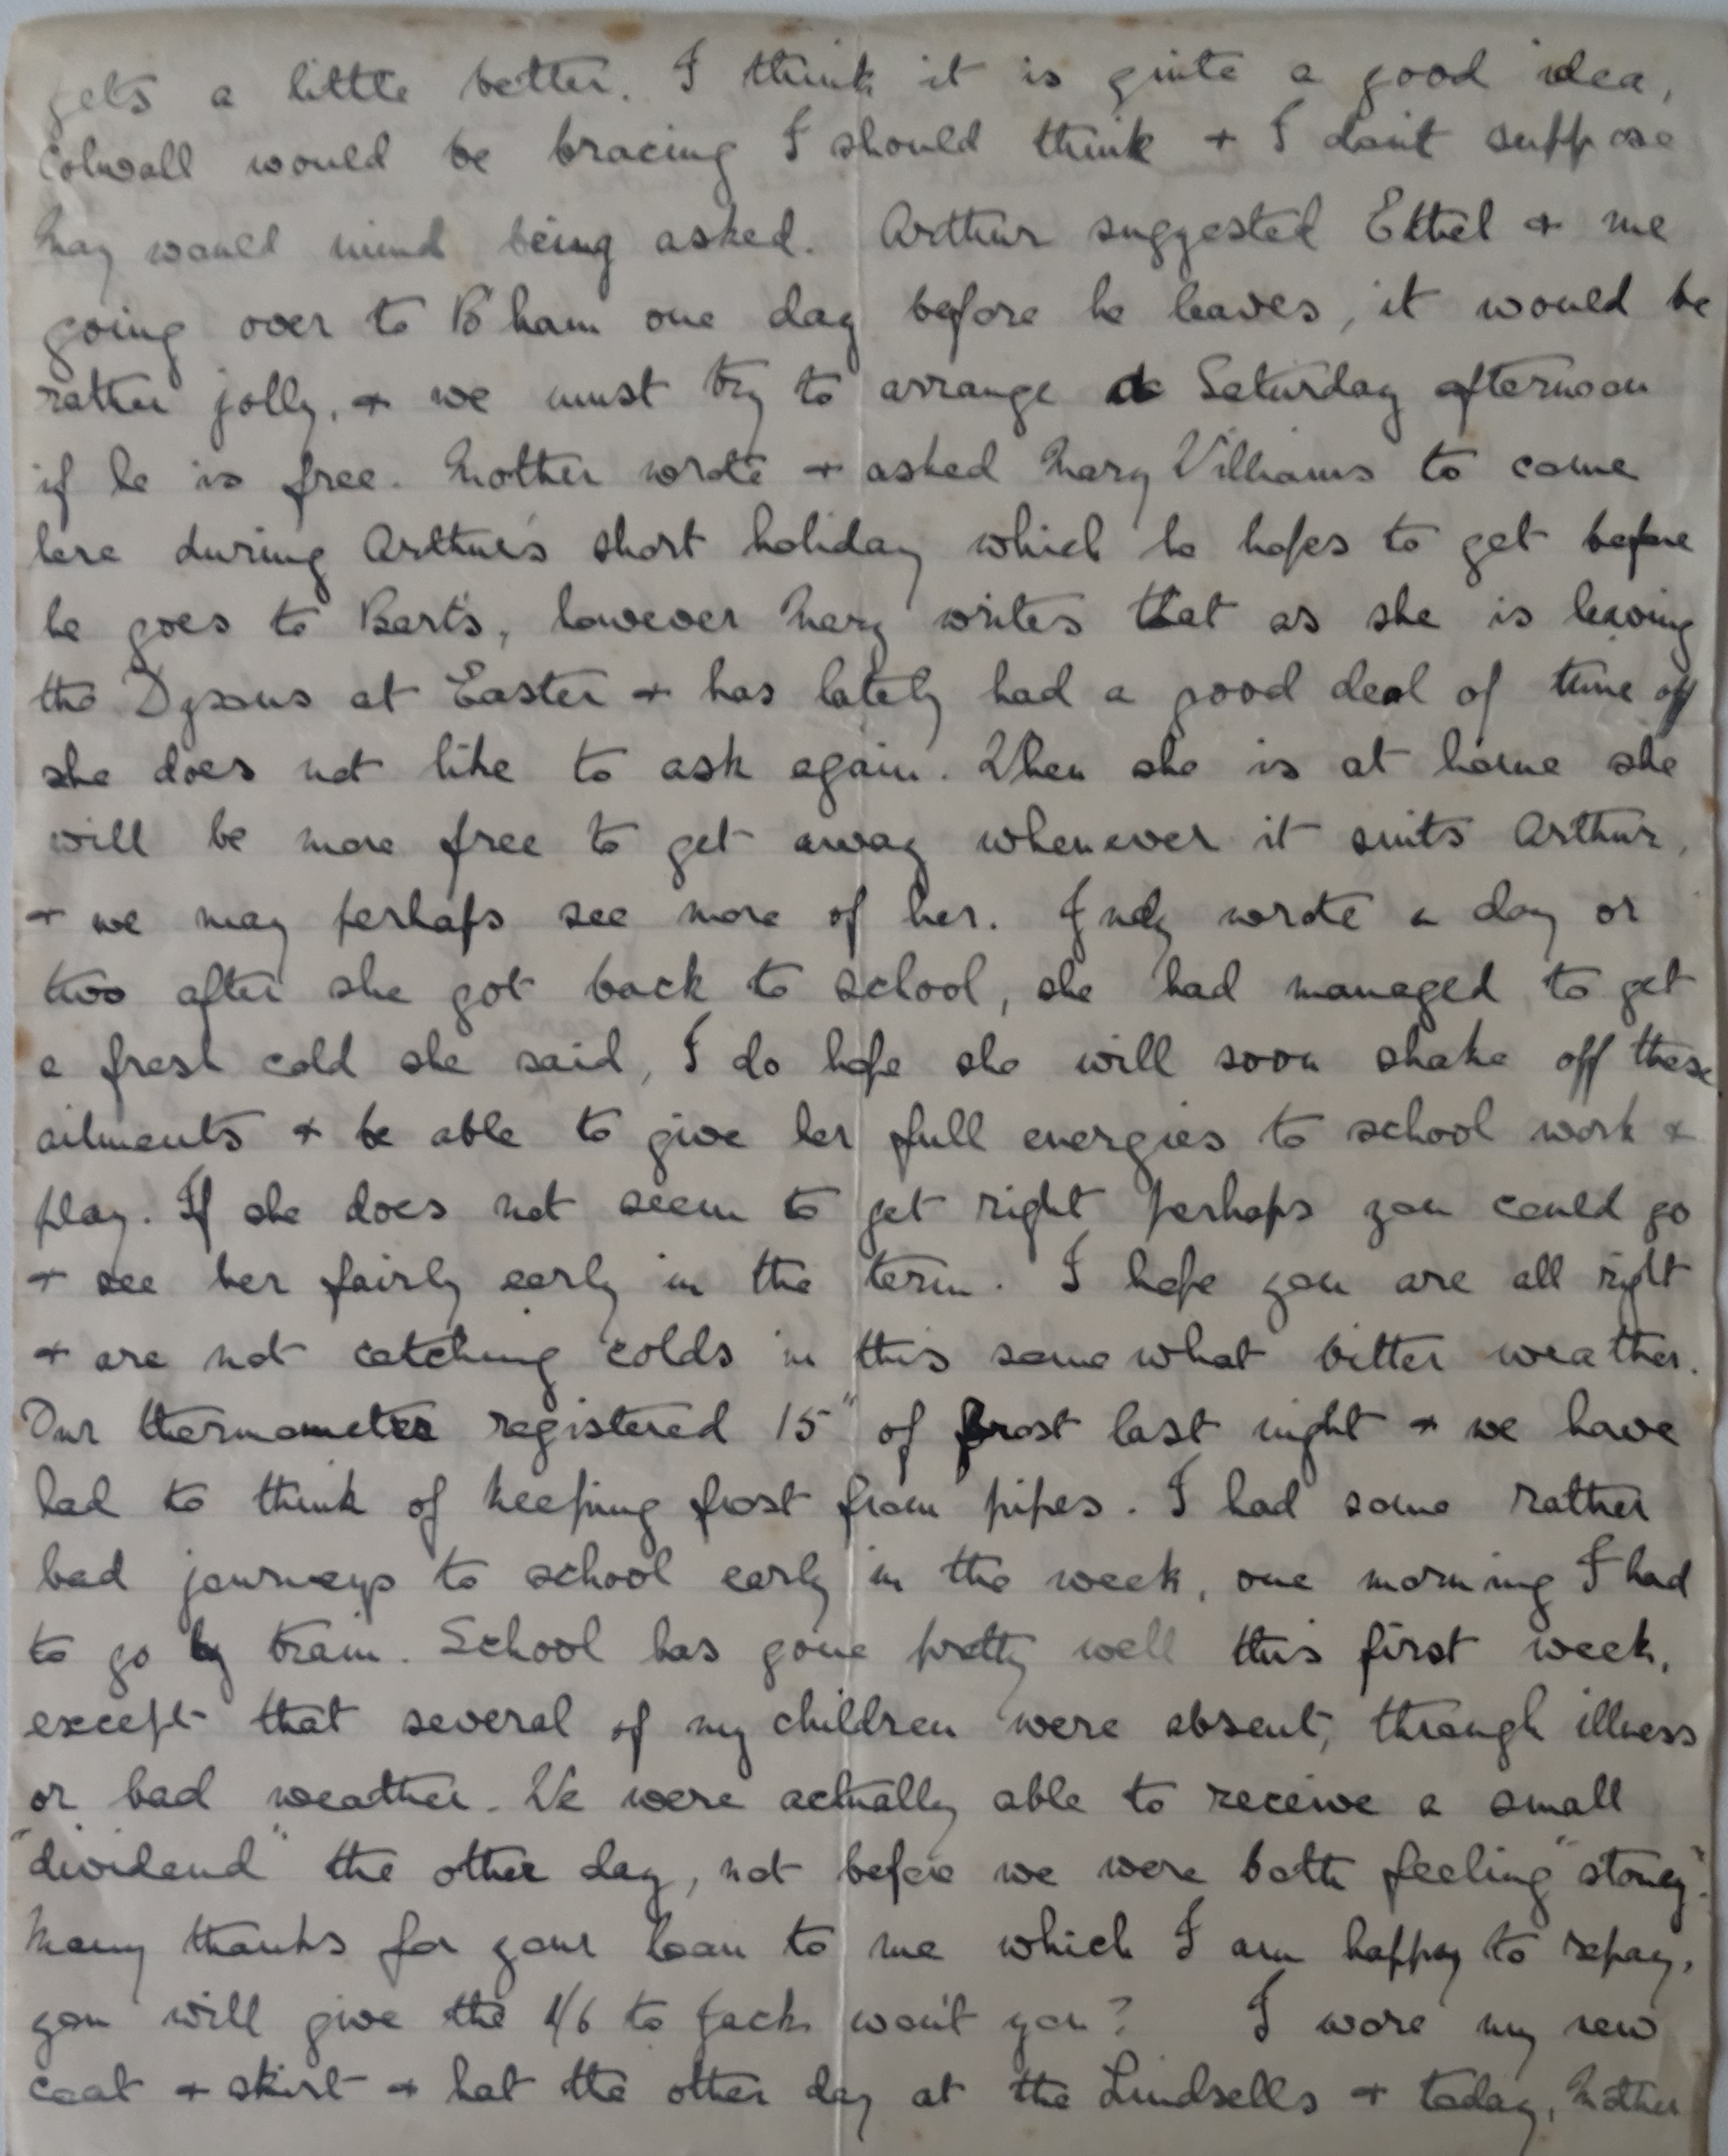 gets a little better. I think it is quite a good idea,
Colwall would be bracing I should think + I don't suppose
May would mind being asked. Arthur suggested Ethel + me
going over to B'ham one day before he leaves, it would be
rather jolly, + we must try to arrange a Saturday afternoon
if he is free. Mother wrote + asked Mary Williams to come
here during Arthur's short holiday which he hopes to get before
he goes to Bart's, however Mary writes that as she is leaving
the Dysons at Easter + has lately had a good deal of time off
she does not like to ask again. When she is at home she
will be more free to get away whenever it suits Arthur,
+ we may perhaps see more of her. Judy wrote a day or
two after she got back to school, she had managed to get
a fresh cold she said, I do hope she will soon shake off these
ailments + be able to give her full energies to school work +
play. If she does not seem to get right perhaps you could go
+ see her fairly early in the term. I hope you are all right
+ are not catching colds in this somewhat bitter weather.
Our thermometer registered 15° of frost last night + we have
had to think of keeping frost from pipes. I had some rather
bad journeys to school early in the week, one morning I had
to go by train. School has gone pretty well this first week,
except that several of my children were absent, through illness
or bad weather. We were actually able to receive a small
"dividend" the other day, not before we were both feeling "stoney".
Many thanks for your loan to me which I am happy to repay,
you will give the 1/6 to Jack won't you? I wore my new
coat + skirt + hat the other day at the Lindsells + today, Mother